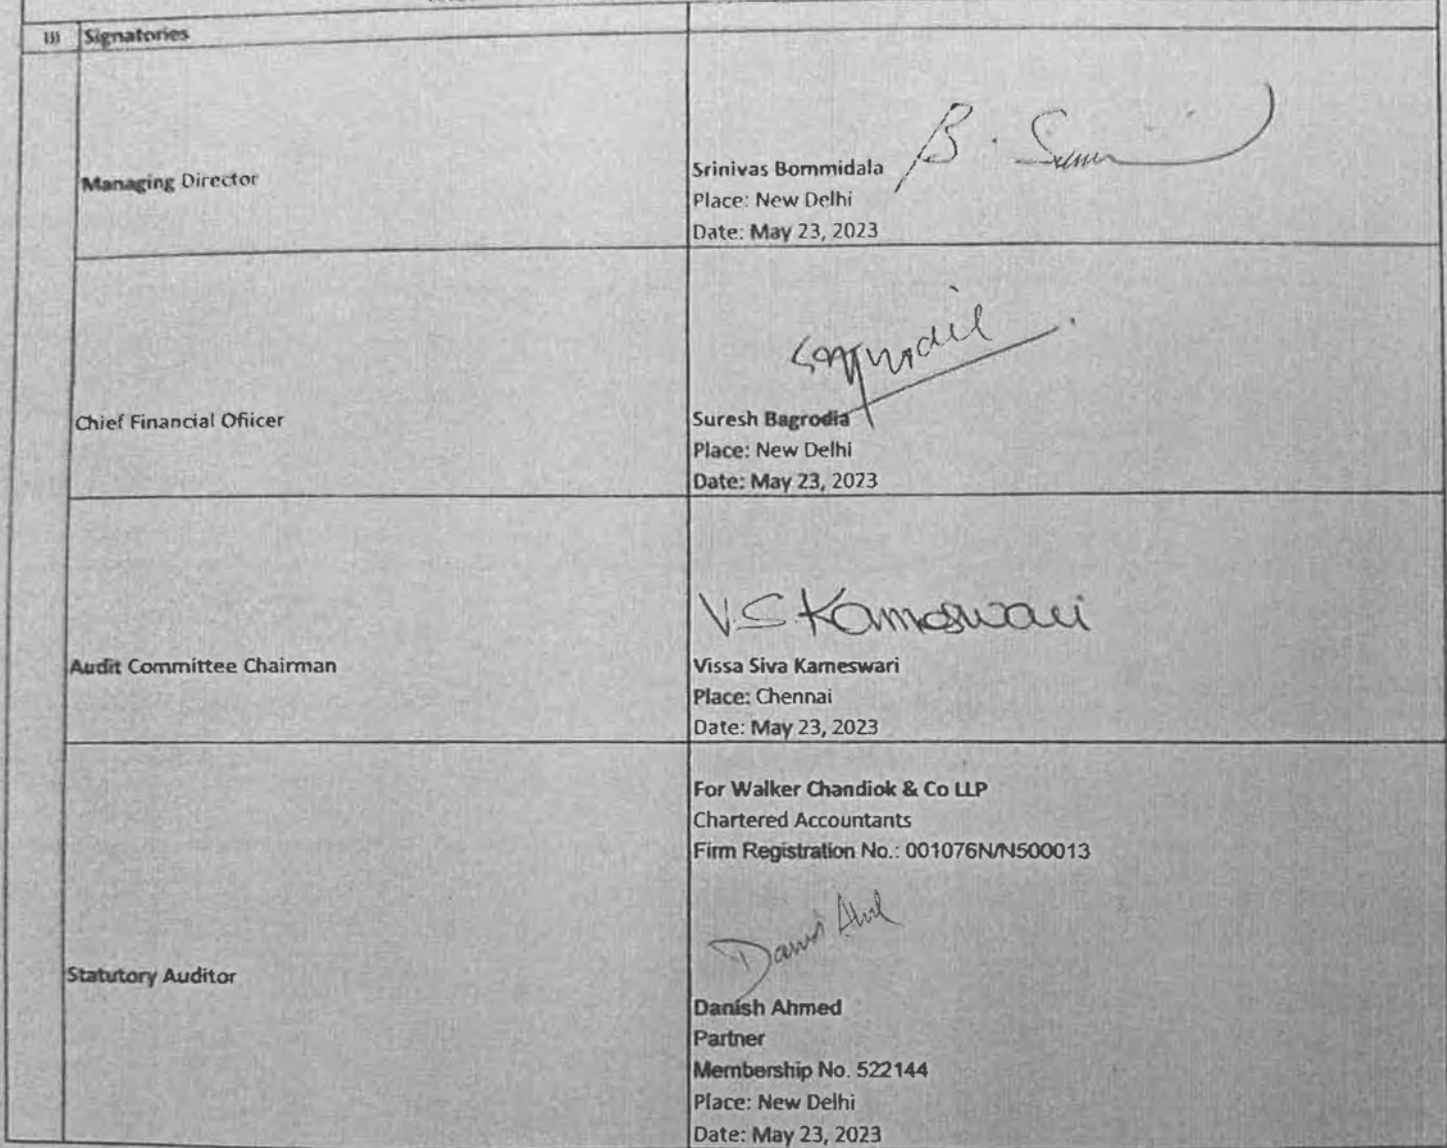 III Signatories
Managing Director
B. 
Srinivas Bommidala
Place: New Delhi
Date: May 23, 2023
Chief Financial Ofiicer
Suresh Bagrodia
Place: New Delhi
Date: May 23, 2023
Audit Committee Chairman
V.S Kameswari
Vissa Siva Kameswari
Place: Chennai
Date: May 23, 2023
Statutory Auditor
For Walker Chandiok & Co LLP
Chartered Accountants
Firm Registration No.: 001076N/N500013
Danish Ahmed
Partner
Membership No. 522144
Place: New Delhi
Date: May 23, 2023